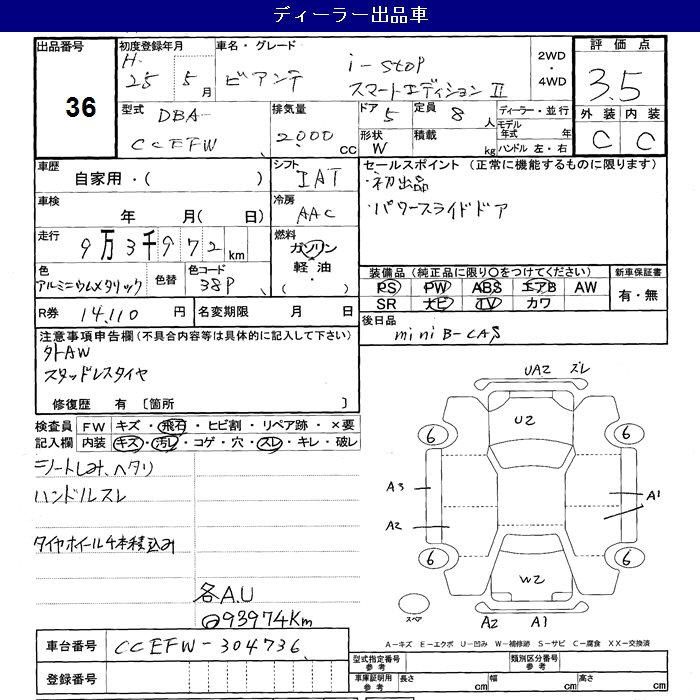 ディーラー出品車
出品番号
36
初度登録年月
H.
25 5月
車名・グレード
ビアンテ
i-stop
スマートエディションⅡ
2WD
・
4WD
評価点
3.5
外装 内装
C C
型式 DBA-
CCEFW
排気量
2000 cc
ドア 5
定員 8 人
形状 W
積載 kg
ディーラー・並行
モデル年式 年
ハンドル 左・右
車歴
自家用・( )
シフト
IAT
車検
年 月( 日)
冷房
AAC
走行
9万3千972km
燃料
ガソリン
軽油・
( )
色
アルミニウムメタリック
色替
色コード
38P
R券 14,110 円
名変期限 月 日
セールスポイント(正常に機能するものに限ります)
・初出品
・パワースライドドア
装備品(純正品に限り○をつけてください)
PS PW ABS エアB AW
SR ナビ TV カワ
新車保証書
有・無
後日品
miniB-CAS
注意事項申告欄(不具合内容等は具体的に記入して下さい)
外AW
スタッドレスタイヤ
修復歴 有 〔箇所 〕
検査員記入欄
FW キズ・飛石・ヒビ割・リペア跡・×要
内装 キズ・汚レ・コゲ・穴・スレ・キレ・破レ
シートしみ、ヘタリ
ハンドルスレ
タイヤホイール4本積込み
各A.U
93974Km
UA2 ズレ
U2
6 6
A3
A1
A2
6 6
W2
スペア
A2 A1
A-キズ E-エクボ U-凹み W-補修跡 S-サビ C-腐食 XX-交換済
車台番号 CCEFW-304736
登録番号
型式指定番号
参考
類別区分番号
参考
車庫証明用
参考
長さ cm 幅 cm 高さ cm